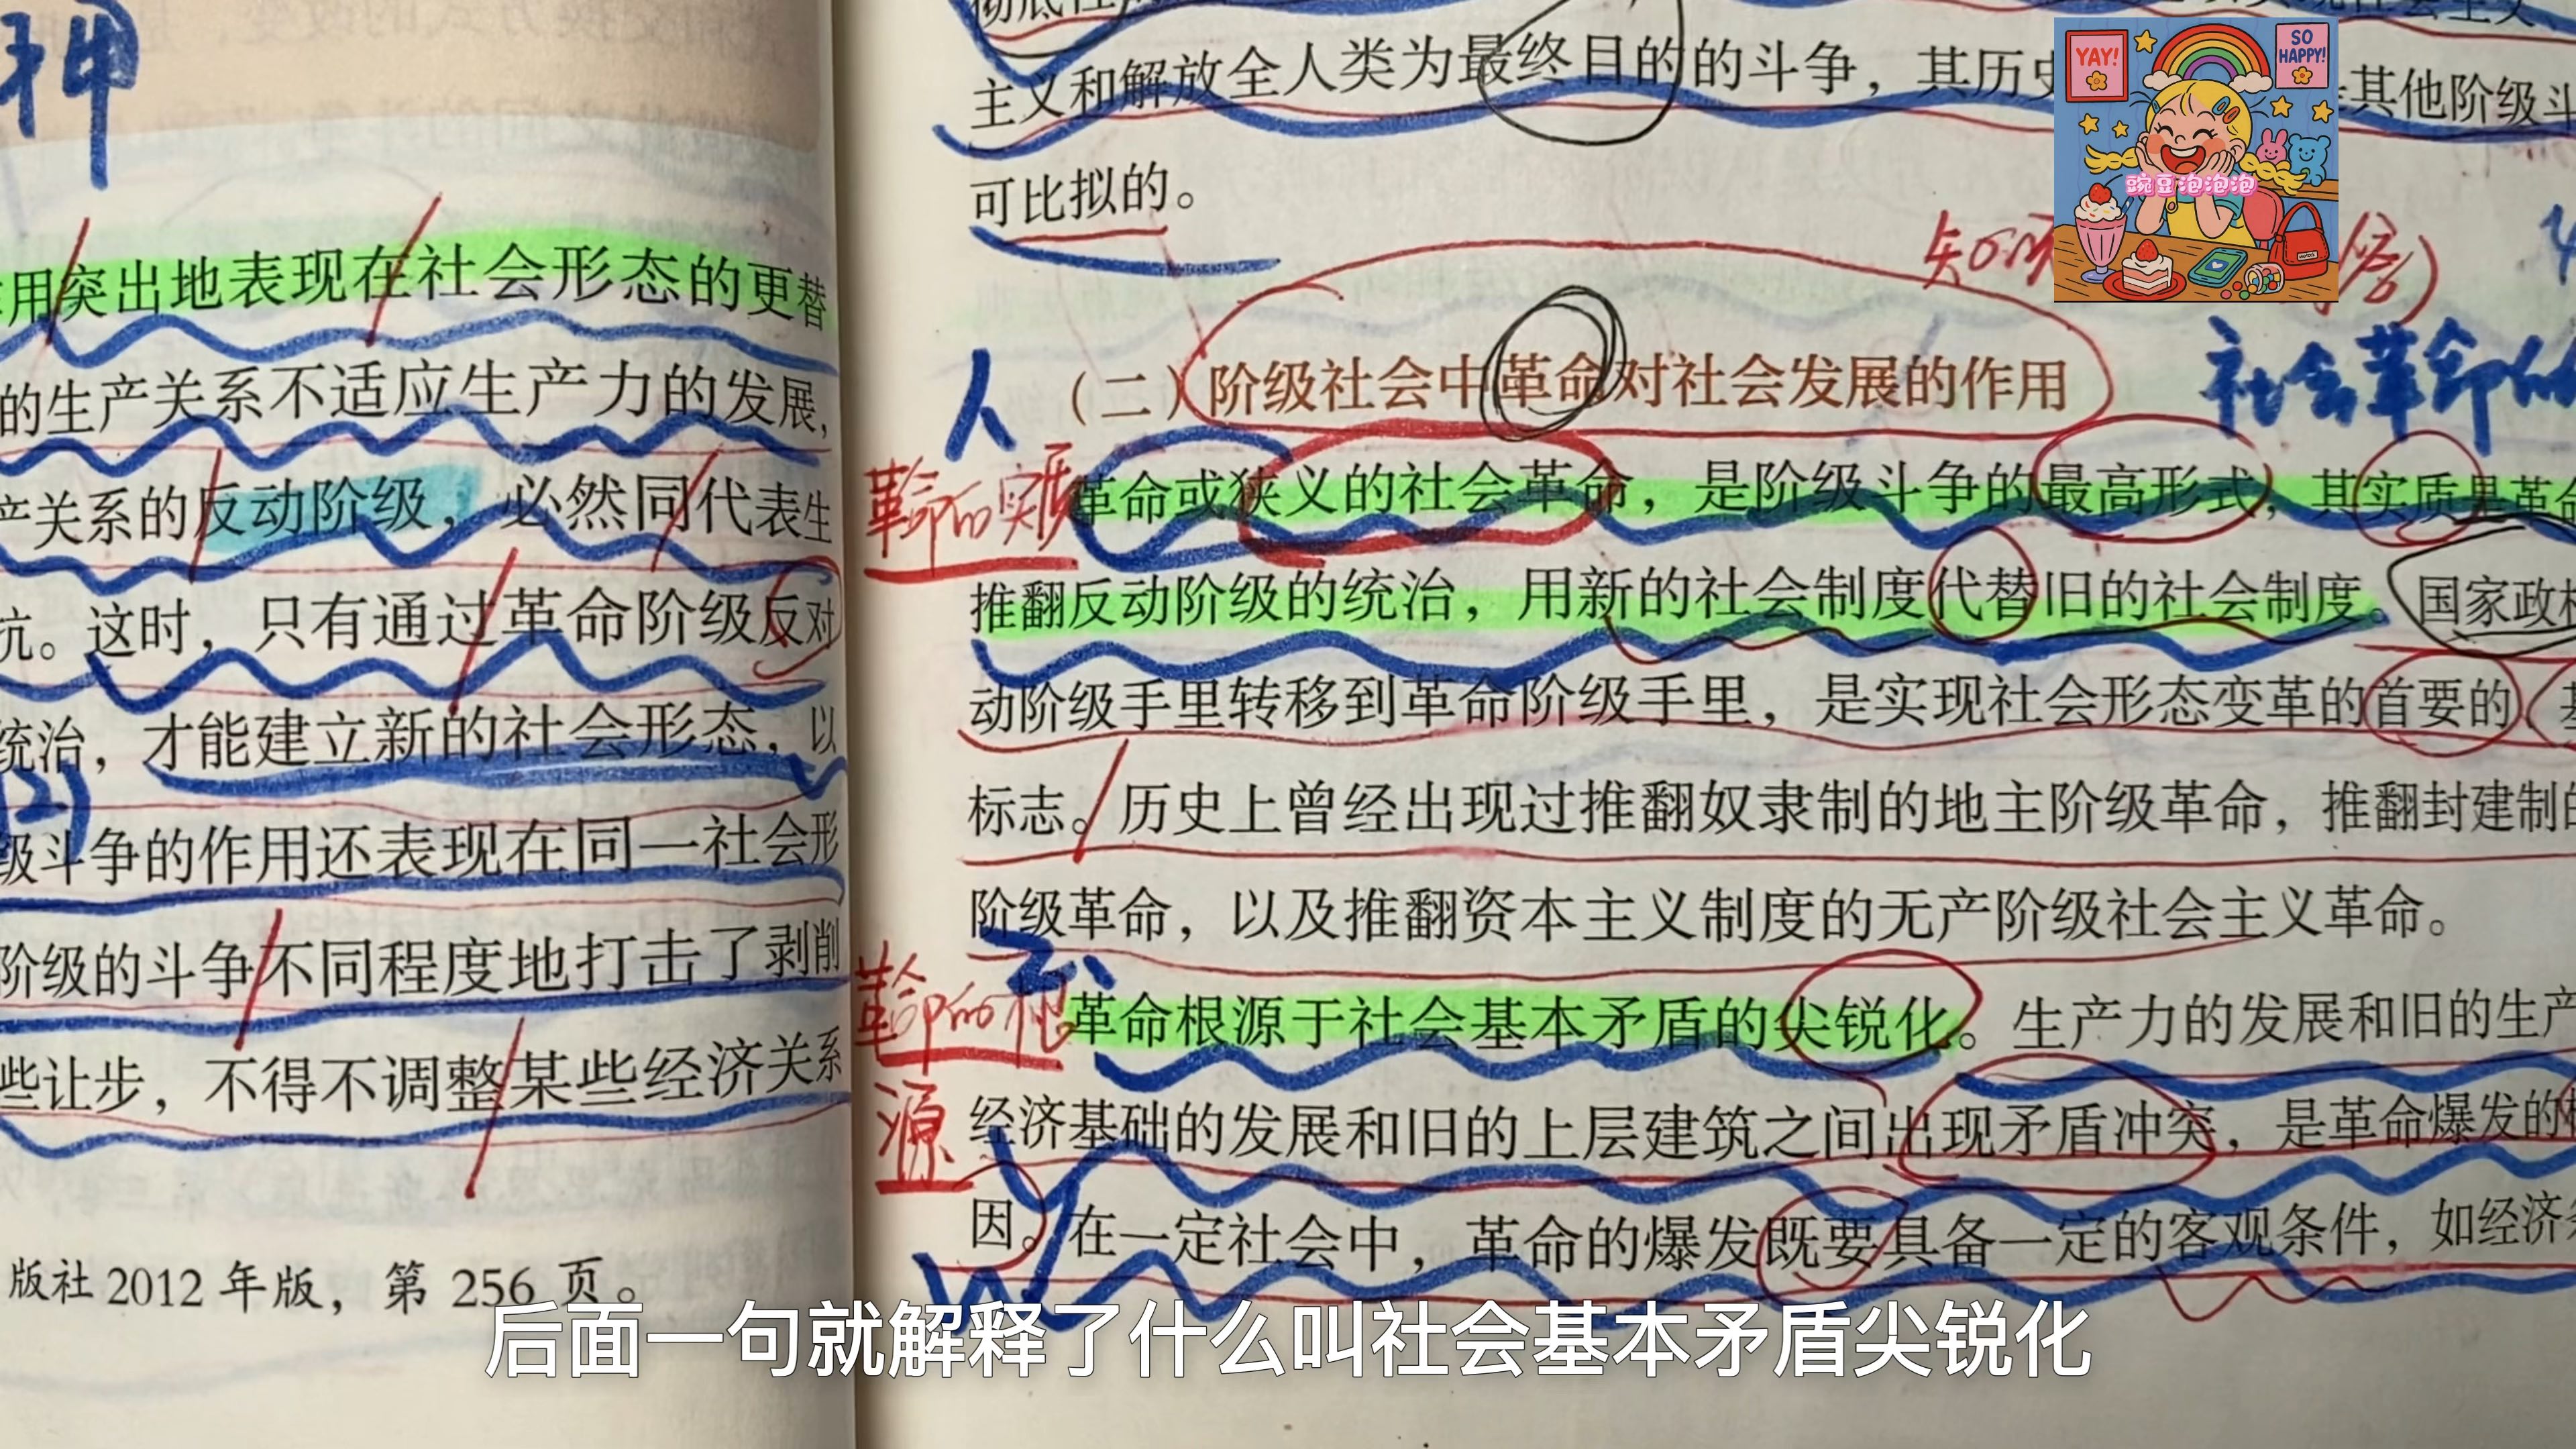 用突出地表现在社会形态的更替
的生产关系不适应生产力的发展,
产关系的反动阶级，必然同代表生
抗。这时，只有通过革命阶级反对
统治，才能建立新的社会形态，以
(2)
级斗争的作用还表现在同一社会形
阶级的斗争不同程度地打击了剥削
些让步，不得不调整某些经济关系
版社 2012 年版，第 256 页。
彻底性
主义和解放全人类为最终目的的斗争，其历史
其他阶级斗
可比拟的。
YAY!
SO HAPPY!
豌豆泡泡泡
（二）阶级社会中革命对社会发展的作用
社会革命的
革命的实质
革命或狭义的社会革命，是阶级斗争的最高形式，其实质是革命
推翻反动阶级的统治，用新的社会制度代替旧的社会制度。国家政权
动阶级手里转移到革命阶级手里，是实现社会形态变革的首要的、基
标志。历史上曾经出现过推翻奴隶制的地主阶级革命，推翻封建制的
阶级革命，以及推翻资本主义制度的无产阶级社会主义革命。
革命的根源
革命根源于社会基本矛盾的尖锐化。生产力的发展和旧的生产
经济基础的发展和旧的上层建筑之间出现矛盾冲突，是革命爆发的根
因。在一定社会中，革命的爆发既要具备一定的客观条件，如经济
后面一句就解释了什么叫社会基本矛盾尖锐化